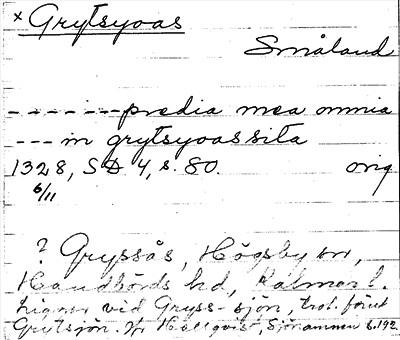 × Grytsyoas
Småland
- - - - - - - predia mea omnia
- - - in grytsyoas sita
1328, SD 4, s. 80. orig
6/11
? Gryssås, Högsby sn,
Handbörds hd, Kalmar l.
Ligger vid Gryss-sjön, trol. förut
Grytsjön. Jfr Hellqvist, Sjönamnen s. 192